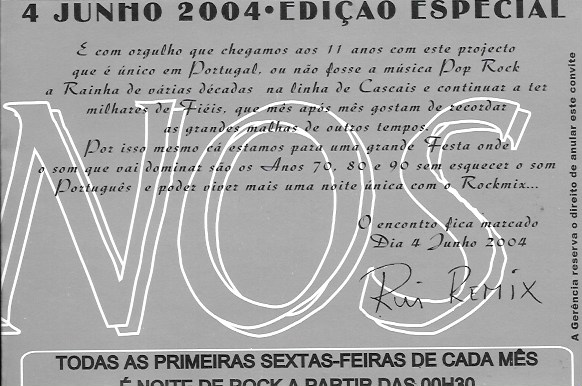 4 JUNHO 2004•EDIÇÃO ESPECIAL
E com orgulho que chegamos aos 11 anos com este projecto
que é único em Portugal, ou não fosse a música Pop Rock
a Rainha de várias décadas na linha de Cascais e continuar a ter
milhares de Fiéis, que mês após mês gostam de recordar
as grandes malhas de outros tempos.
Por isso mesmo cá estamos para uma grande Festa onde
o som que vai dominar são os Anos 70, 80 e 90 sem esquecer o som
Português e poder viver mais uma noite única com o Rockmix...
O encontro fica marcado
Dia 4 Junho 2004
Rui REMIX
NOS
A Gerência reserva o direito de anular este convite
TODAS AS PRIMEIRAS SEXTAS-FEIRAS DE CADA MÊS
É NOITE DE ROCK A PARTIR DAS 00H30